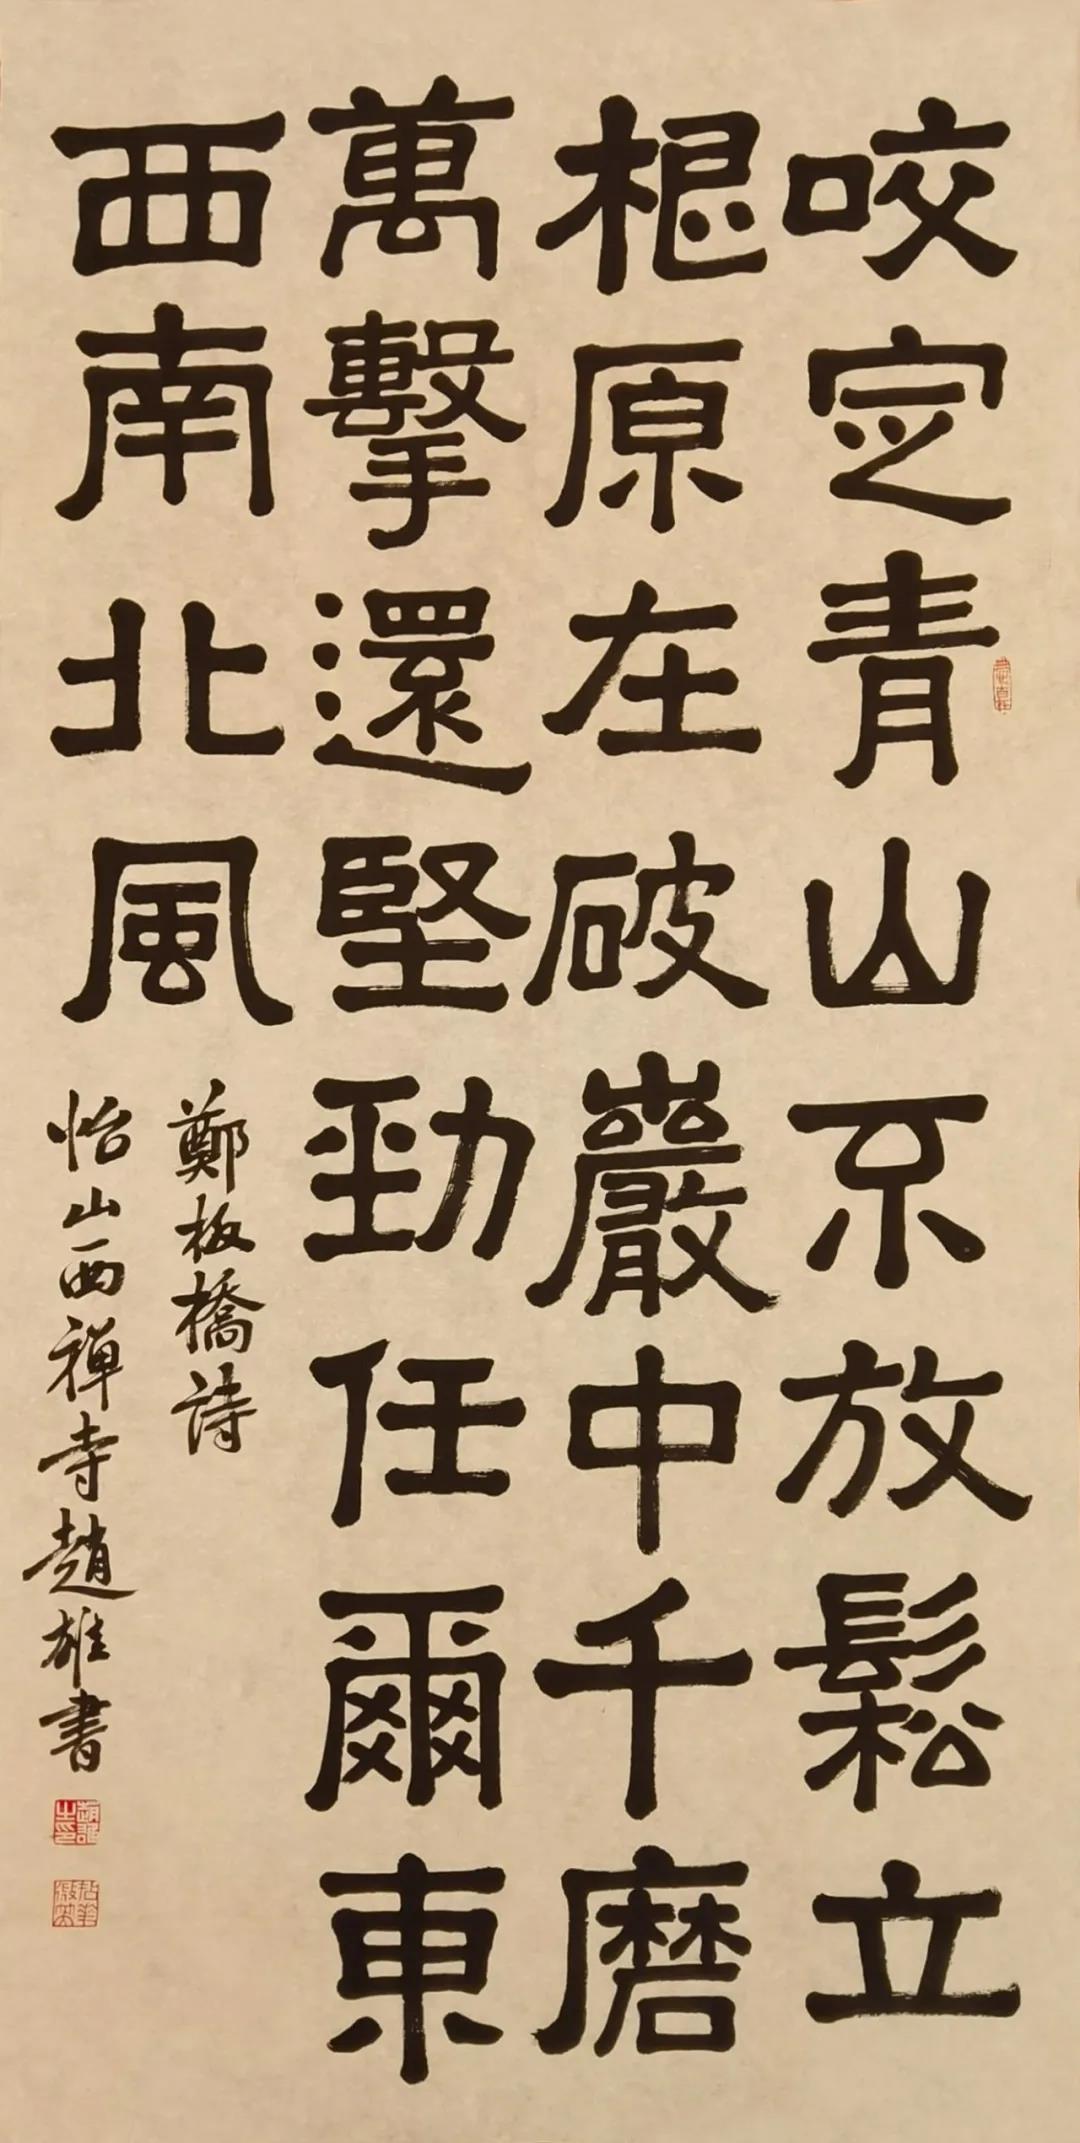 咬定青山不放鬆立
根原在破巖中千磨
萬擊還堅勁任爾東
西南北風
鄭板橋詩
怡山西禪寺趙雄書
趙雄之印